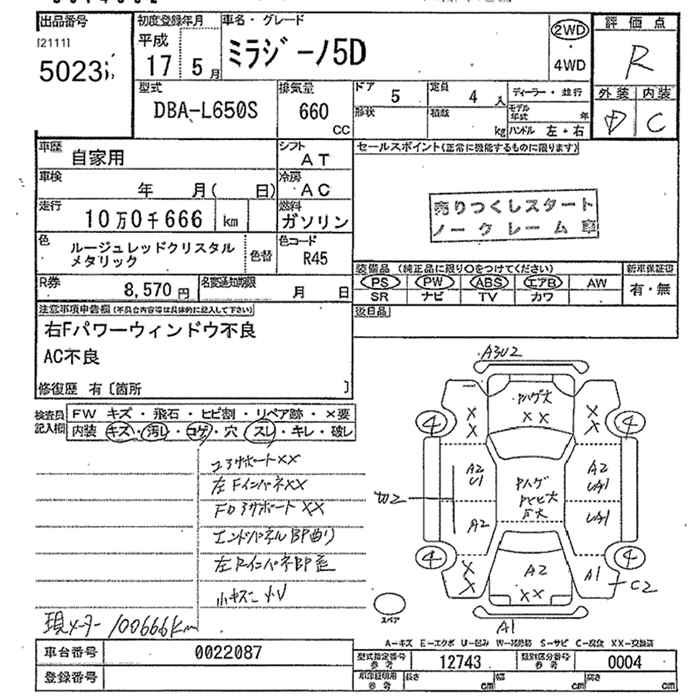 出品番号
[2111]
5023
初度登録年月
平成
17 5月
車名・グレード
ミラジーノ5D
2WD
・
4WD
評価点
R
外装 内装
D C
型式
DBA-L650S
排気量
660
CC
ドア
5
定員
4 人
形状
積載
kg
ディーラー・並行
モデル年式 年
ハンドル 左・右
車歴
自家用
シフト
AT
車検
年 月( 日)
冷房
AC
走行
10万0千666 km
燃料
ガソリン
色
ルージュレッドクリスタル
メタリック
色替
色コード
R45
R券
8,570 円
名変通知期限
月 日
セールスポイント(正常に機能するものに限ります)
売りつくしスタート
ノークレーム車
装備品 (純正品に限り○をつけてください)
PS PW ABS エアB AW
SR ナビ TV カワ
新車保証書
有・無
後日品
注意事項申告欄(不具合内容等は具体的に記入して下さい)
右Fパワーウィンドウ不良
AC不良
修復歴 有〔箇所 〕
検査員
記入欄
FW キズ・飛石・ヒビ割・リペア跡・×要
内装 キズ・汚レ・コゲ・穴・スレ・キレ・破レ
コアサポートXX
左FインパネXX
FDアサポートXX
エンドパネルBP曲り
現メーター100666km
A3U2
XX
XX
XX
XX
XX
4
4
4
4
A2
U1
A2
A2
UA1
UA1
A2
A1
C2
A1
スペア
A-キズ E-エクボ U-凹み W-補修跡 S-サビ C-腐食 XX-交換済
車台番号
0022087
登録番号
型式指定番号
参考
12743
類別区分番号
参考
0004
参考
長さ cm
幅 cm
高さ cm